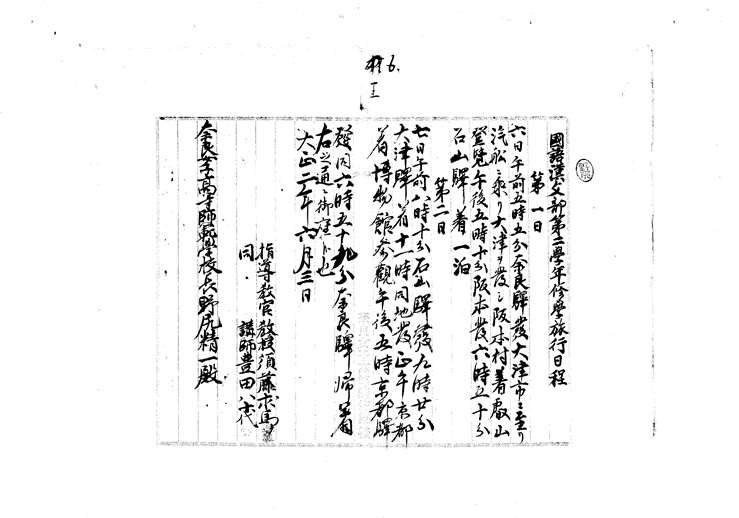 6.
國語漢文部第二學年修學旅行日程
第一日
六日午前五時五分奈良驛發大津市ニ至リ
汽舩ニ乘リ大津ヲ發シ阪本村着叡山
登覽午後五時十分阪本發六時五十分
石山驛着一泊
第二日
七日午前八時十分石山驛發九時廿分
大津驛着十一時同地發正午京都
着博物館參觀午後五時京都驛
發同六時五十九分奈良驛歸着
右之通御座候也
大正二年六月三日
指導教官教授須藤求馬
同.講師豊田八十代
奈良女子高等師範學校長野尻精一殿